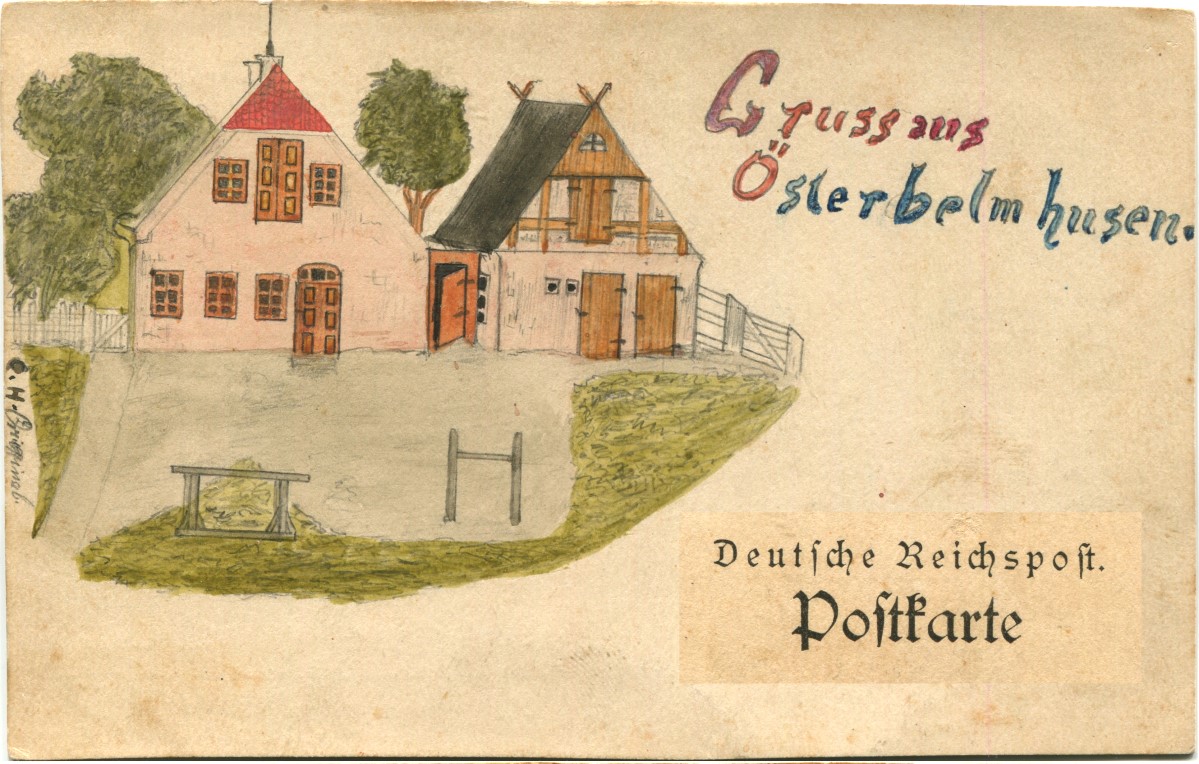 Gruss aus
Österbelmhusen.
C. H.
Deutſche Reichspoſt.
Poſtkarte